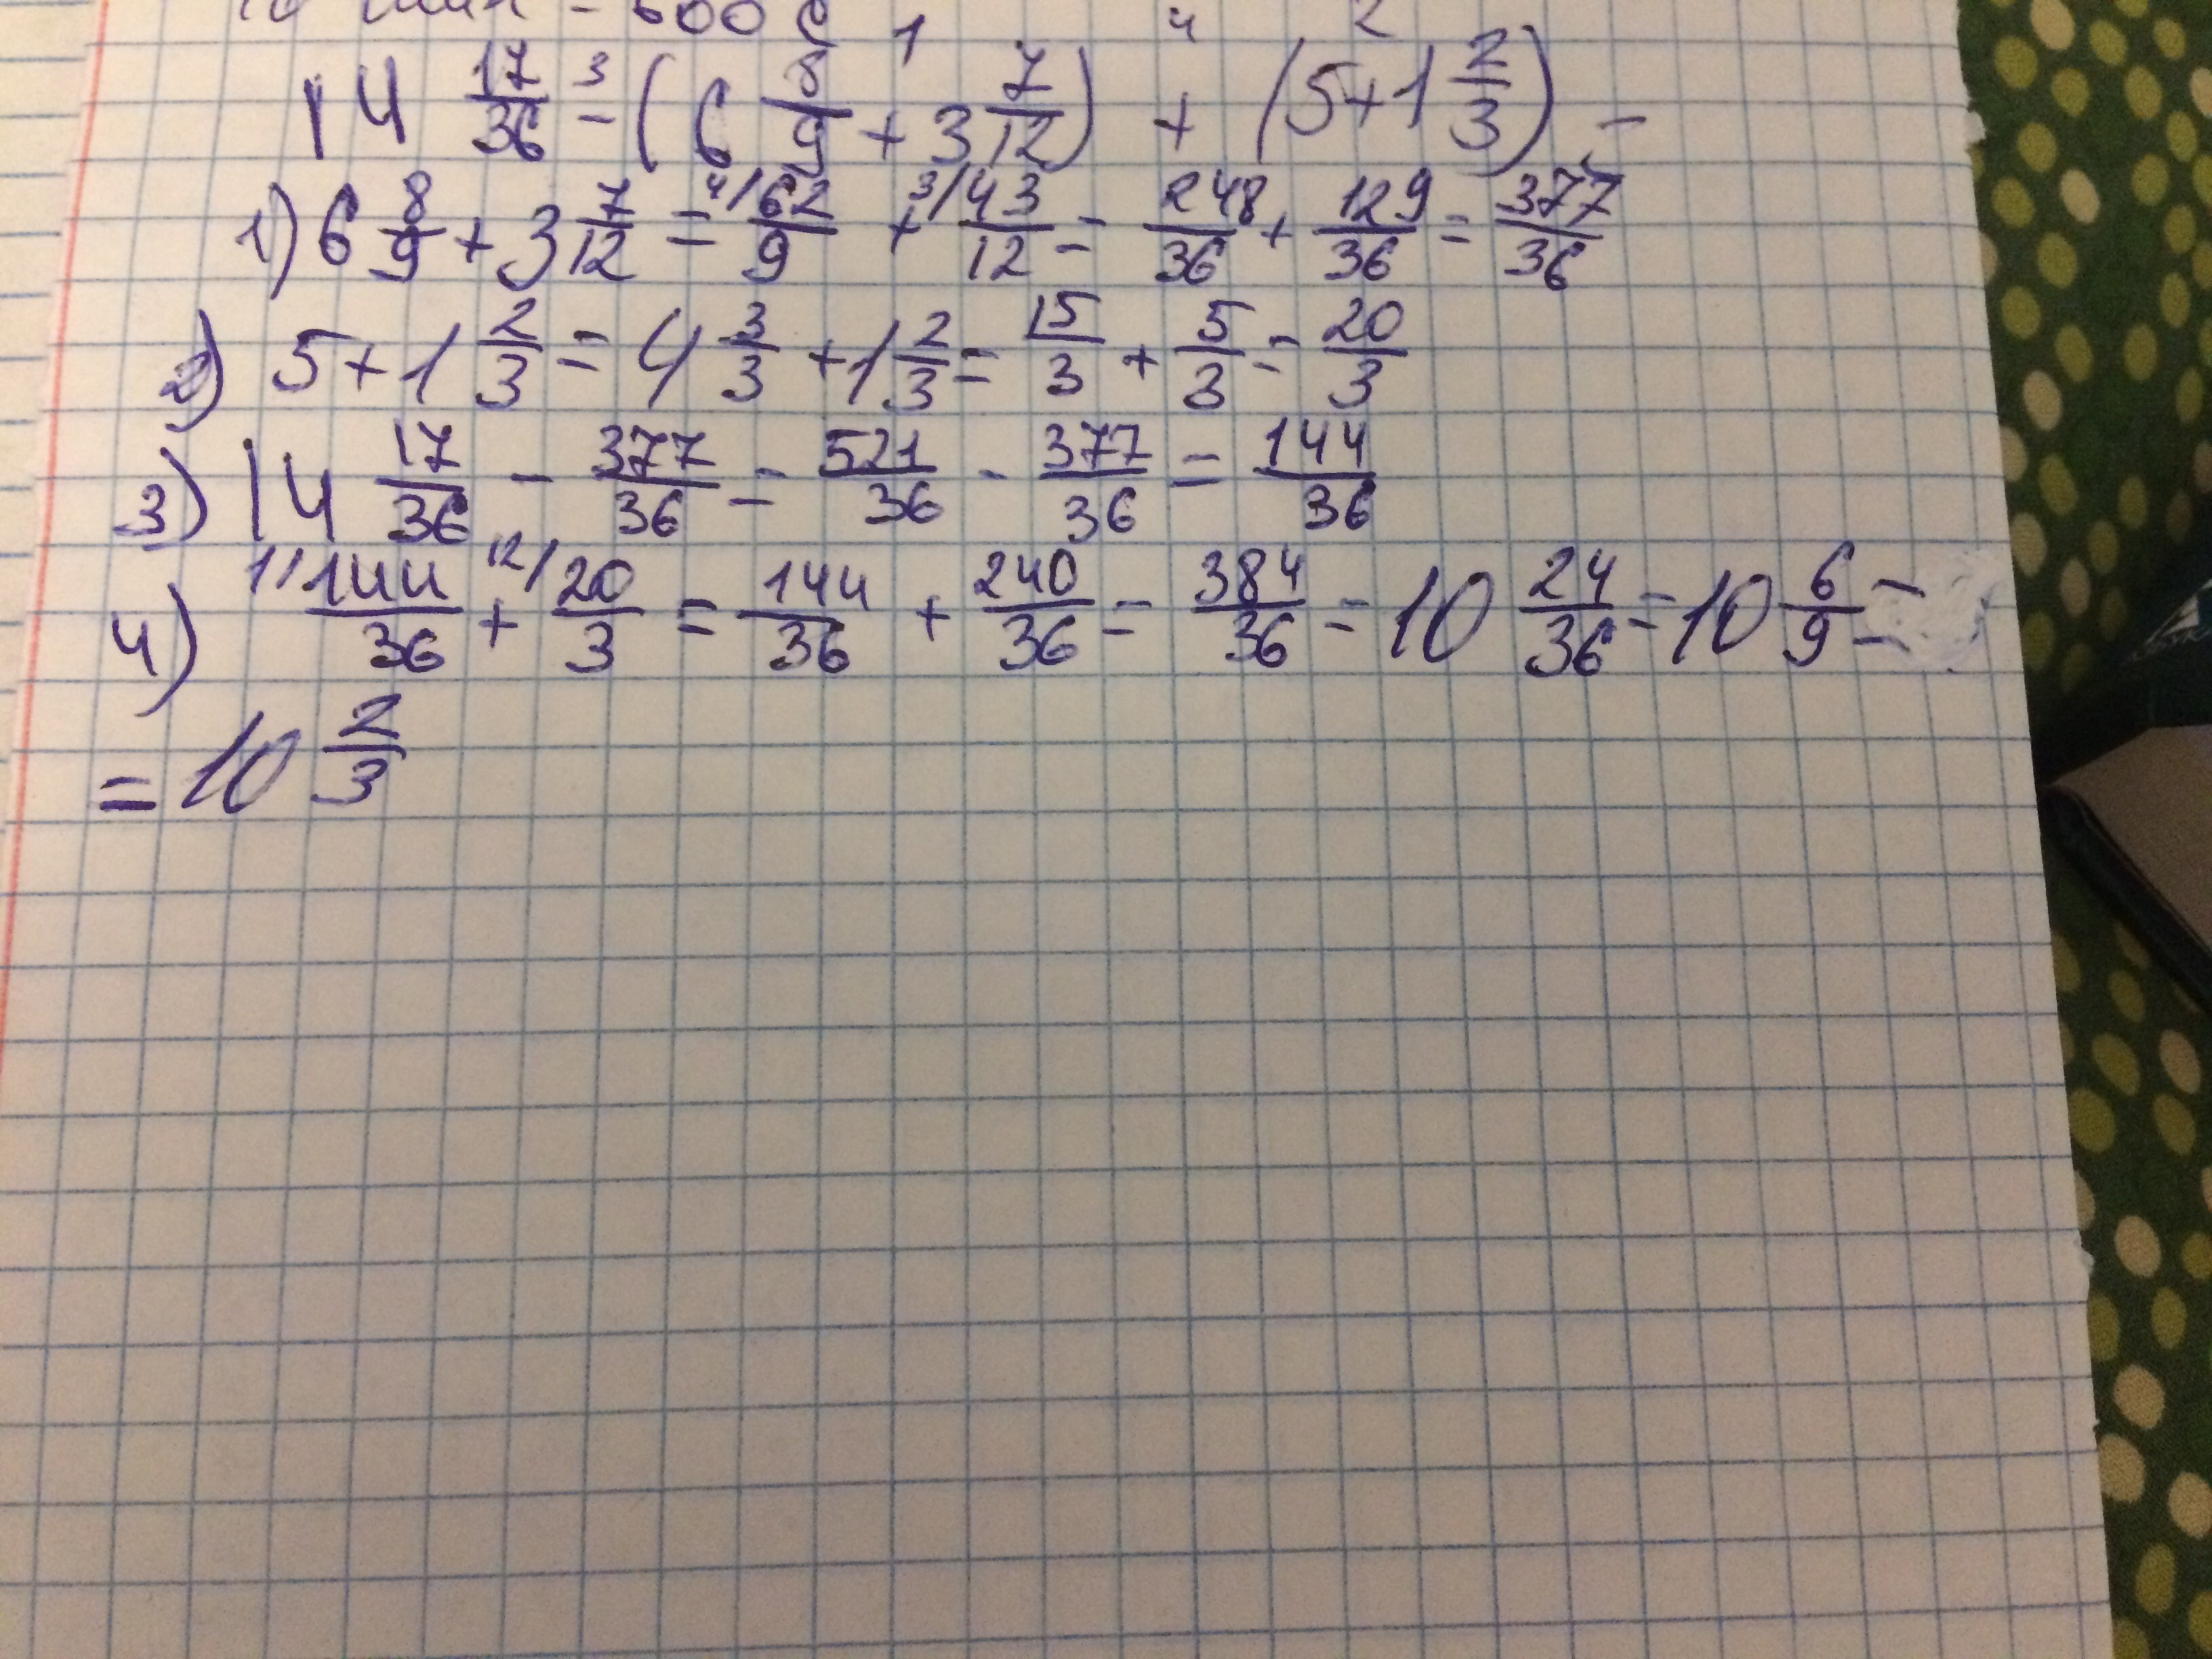 = 600 с
1 4 2
14 17/36 3 - (6 8/9 + 3 7/12) + (5+1 2/3) =
1) 6 8/9 + 3 7/12 = 4/ 62/9 + 3/ 43/12 = 248/36 + 129/36 = 377/36
2) 5+1 2/3 = 4 3/3 + 1 2/3 = 15/3 + 5/3 = 20/3
3) 14 17/36 - 377/36 = 521/36 - 377/36 = 144/36
4) 1/ 144/36 + 12/ 20/3 = 144/36 + 240/36 = 384/36 = 10 24/36 = 10 6/9 =
= 10 2/3